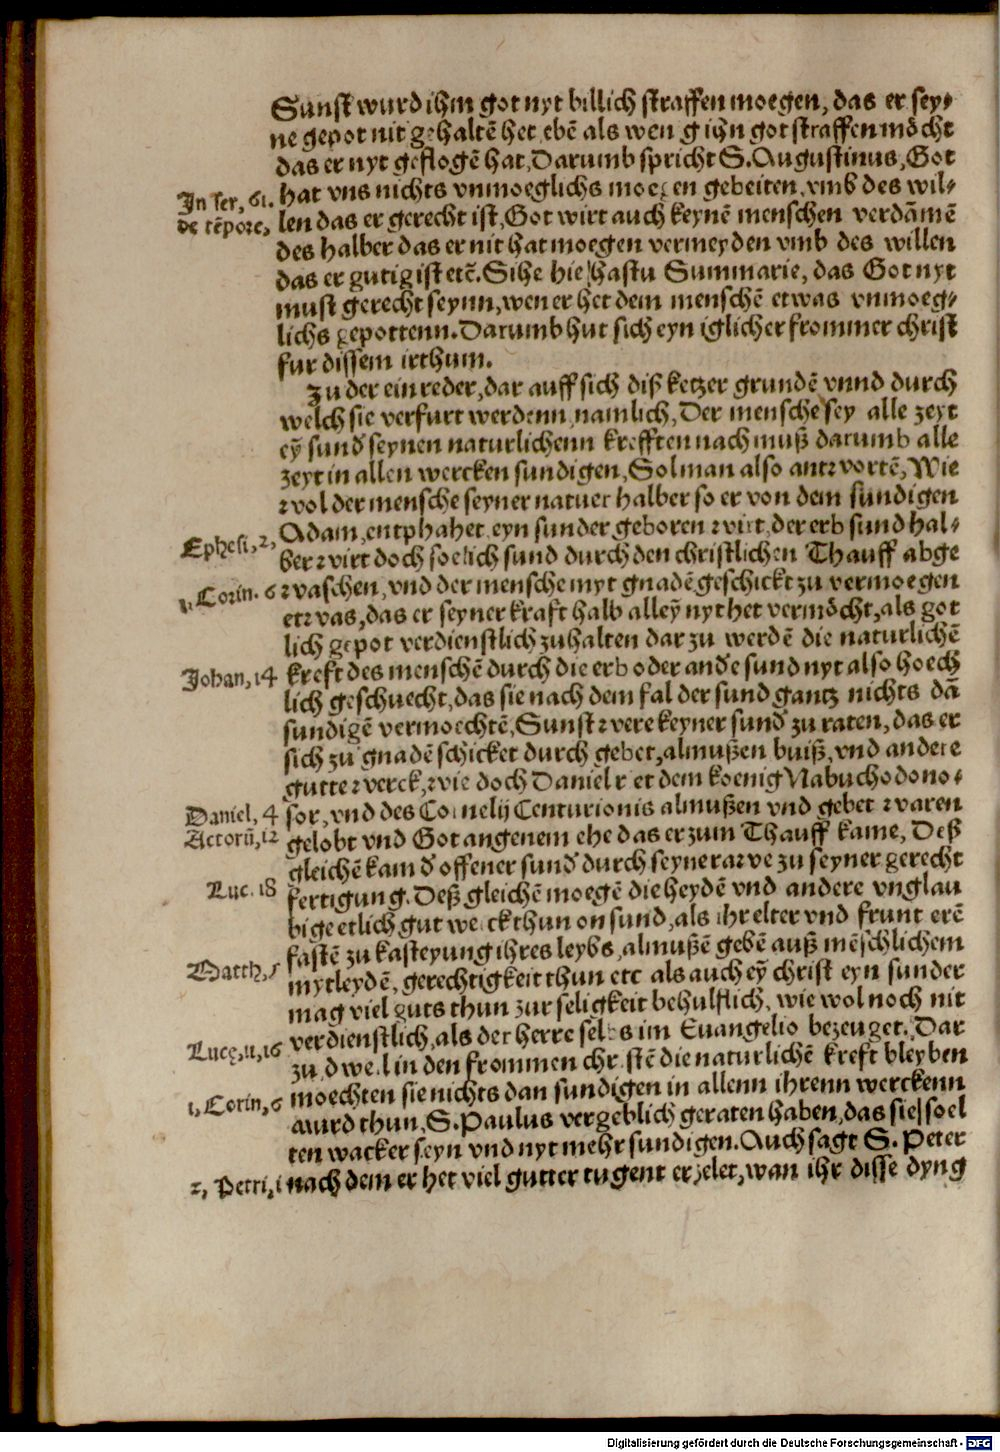 Sunst wurd ihm got nyt billich straffen moegen, das er sey⸗
ne gepot nit gehaltē het ebē als wenig ihn got straffen möcht
das er nyt geflogē hat, Darumb spricht S. Augustinus, Got
In ser, 61. hat vns nichts vnmoeglichs moegen gebeiten, vmb des wil⸗
de tēpore, len das er gerecht ist, Got wirt auch keynē menschen verdāmē
des halber das er nit hat moegen vermeyden vmb des willen
das er gutig ist etc̄. Sihe hie hastu Summarie, das Got nyt
must gerecht seynn, wen er het dem menschē etwas vnmoeg⸗
lichs gepottenn. Darumb hut sich eyn iglicher frommer christ
fur dissem irthum.
Zu der einreder, dar auff sich diß ketzer grundē vnnd durch
welch sie verfurt werdenn, namlich, Der mensche sey alle zeyt
eȳ sund seynen naturlichenn krefften nach muß darumb alle
zeyt in allen wercken sundigen, Sol man also antwortē, Wie
wol der mensche seyner natuer halber so er von dem sundigen
Ephesi, 2, Adam, entphahet eyn sunder geboren wirt, der erb sund hal⸗
ber wirt doch soelich sund durch den christlichen Thauff abge
1. Corin. 6 waschen, vnd der mensche myt gnadē geschickt zu vermoegen
etwas, das er seyner kraft halb alleȳ nyt het vermöcht, als got
lich gepot verdienstlich zuhalten dar zu werdē die naturlichē
Johan, 14 kreft des menschē durch die erb oder ande sund nyt also hoech
lich geschuecht, das sie nach dem fal der sund gantz nichts dā
sundigē vermoechtē, Sunst were keyner sund zu raten, das er
sich zu gnadē schicket durch gebet, almußen buiß, vnd andere
gutte werck, wie doch Daniel riet dem koenig Nabuchodono⸗
Daniel, 4 sor, vnd des Cornelij Centurionis almußen vnd gebet waren
Actorū, 12 gelobt vnd Got angenem ehe das er zum Thauff kame, Deß
gleichē kam d offener sund durch seyne rawe zu seyner gerecht
Luc. 18 fertigung. Deß gleichē moegē die heydē vnd andere vnglau
bige etlich gut werck thun on sund, als ihr elter vnd frunt erē
Matth, 5 fastē zu kasteyung ihres leybs, almußē gebē auß mēschlichem
mytleydē, gerechtigkeit thun etc als auch eȳ christ eyn sunder
mag viel guts thun zur seligkeit behulflich, wie wol noch nit
Luce, 11, 16 verdienstlich, als der herre selbs im Euangelio bezeuget. Dar
zu, d weil in den frommen christē die naturlichē kreft bleyben
1, Corin, 6 moechten sie nichts dan sundigen in allenn ihrenn werckenn
wurd thun, S. Paulus vergeblich geraten haben, das sie soel
ten wacker seyn vnd nyt mehr sundigen. Auch sagt S. Peter
2, Petri, 1 nach dem er het viel gutter tugent erzelet, wan ihr disse dyng
Digitalisierung gefördert durch die Deutsche Forschungsgemeinschaft - DFG